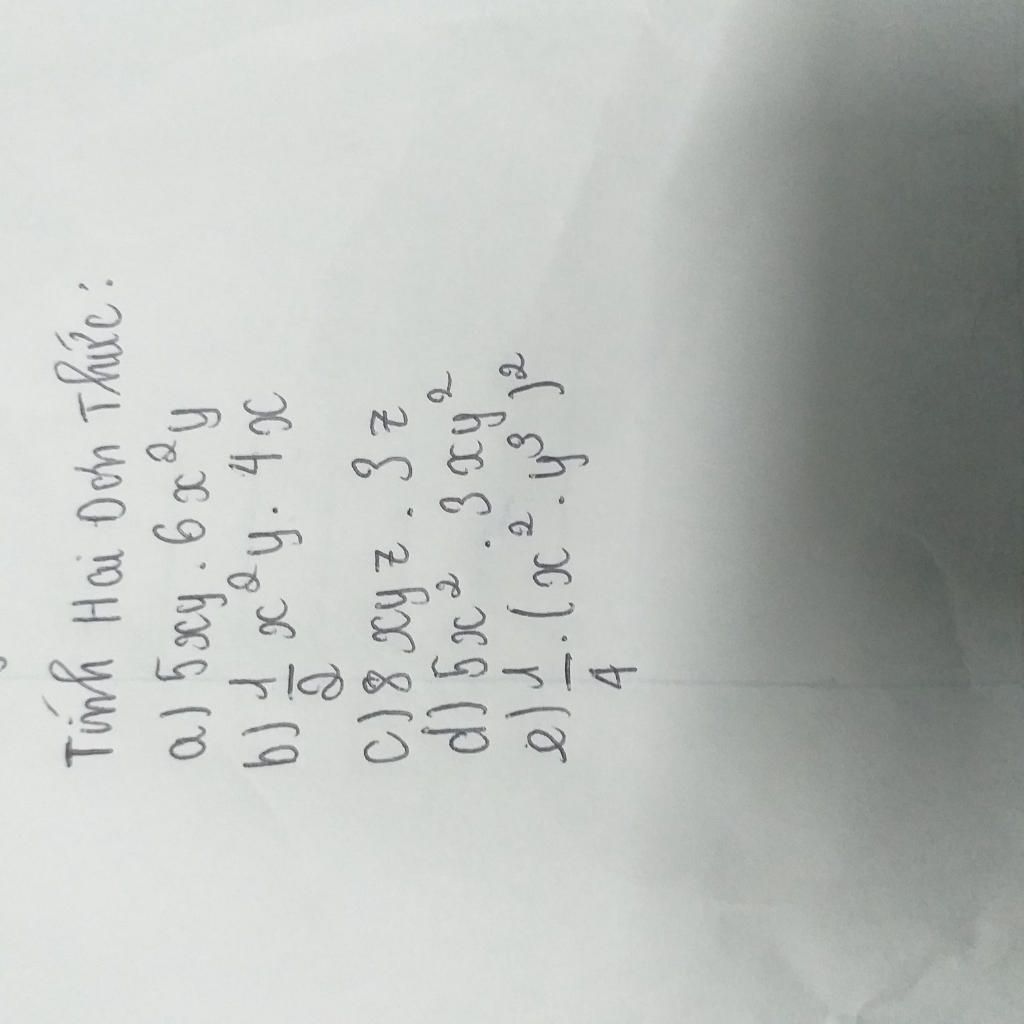 Tính Hai Đơn Thức:
a) 5xy . 6x²y
b) 1/2 x²y . 4x
c) 8xyz . 3z
d) 5x² . 3xy²
e) 1/4 . (x² . y³)²